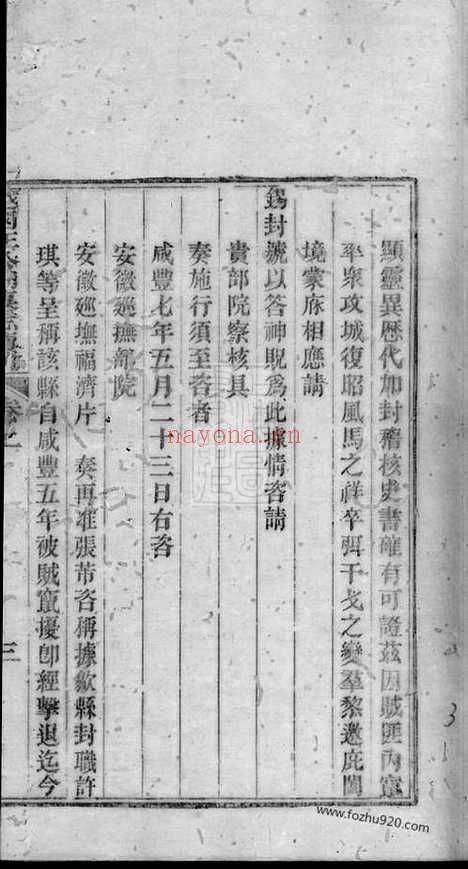 顯靈異歷代加封稽核史書確有可證茲因賊匪內竄
率衆攻城復昭風馬之祥卒弭干戈之變羣黎邀庇闔
境蒙庥相應請
錫封號以答神貺爲此據情咨請
貴部院察核具
奏施行須至咨者
咸豐七年五月二十三日右咨
安徽廵撫部院
安徽廵撫福濟片 奏再准張芾咨稱據歙縣封職許
琪等呈稱該縣自咸豐五年被賊竄擾卽經擊退迄今
三
3
nayona.cn
www.fozhu920.com